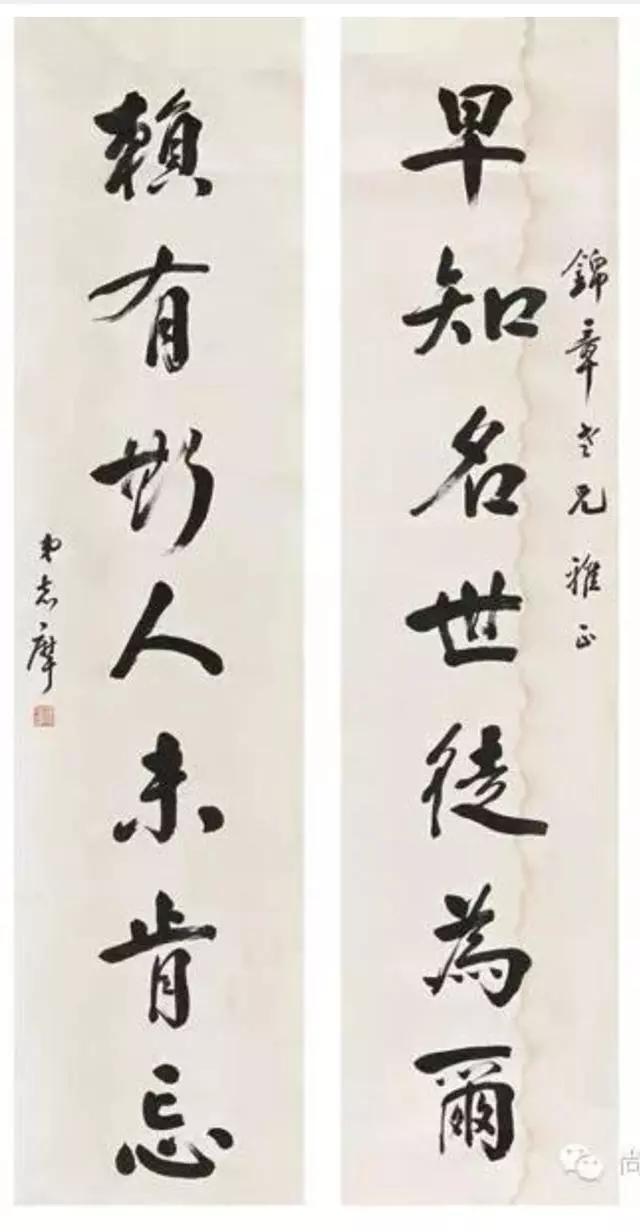 錦章老兄雅正
早知名世徒為爾
賴有斯人未肯忘
弟志摩
尚